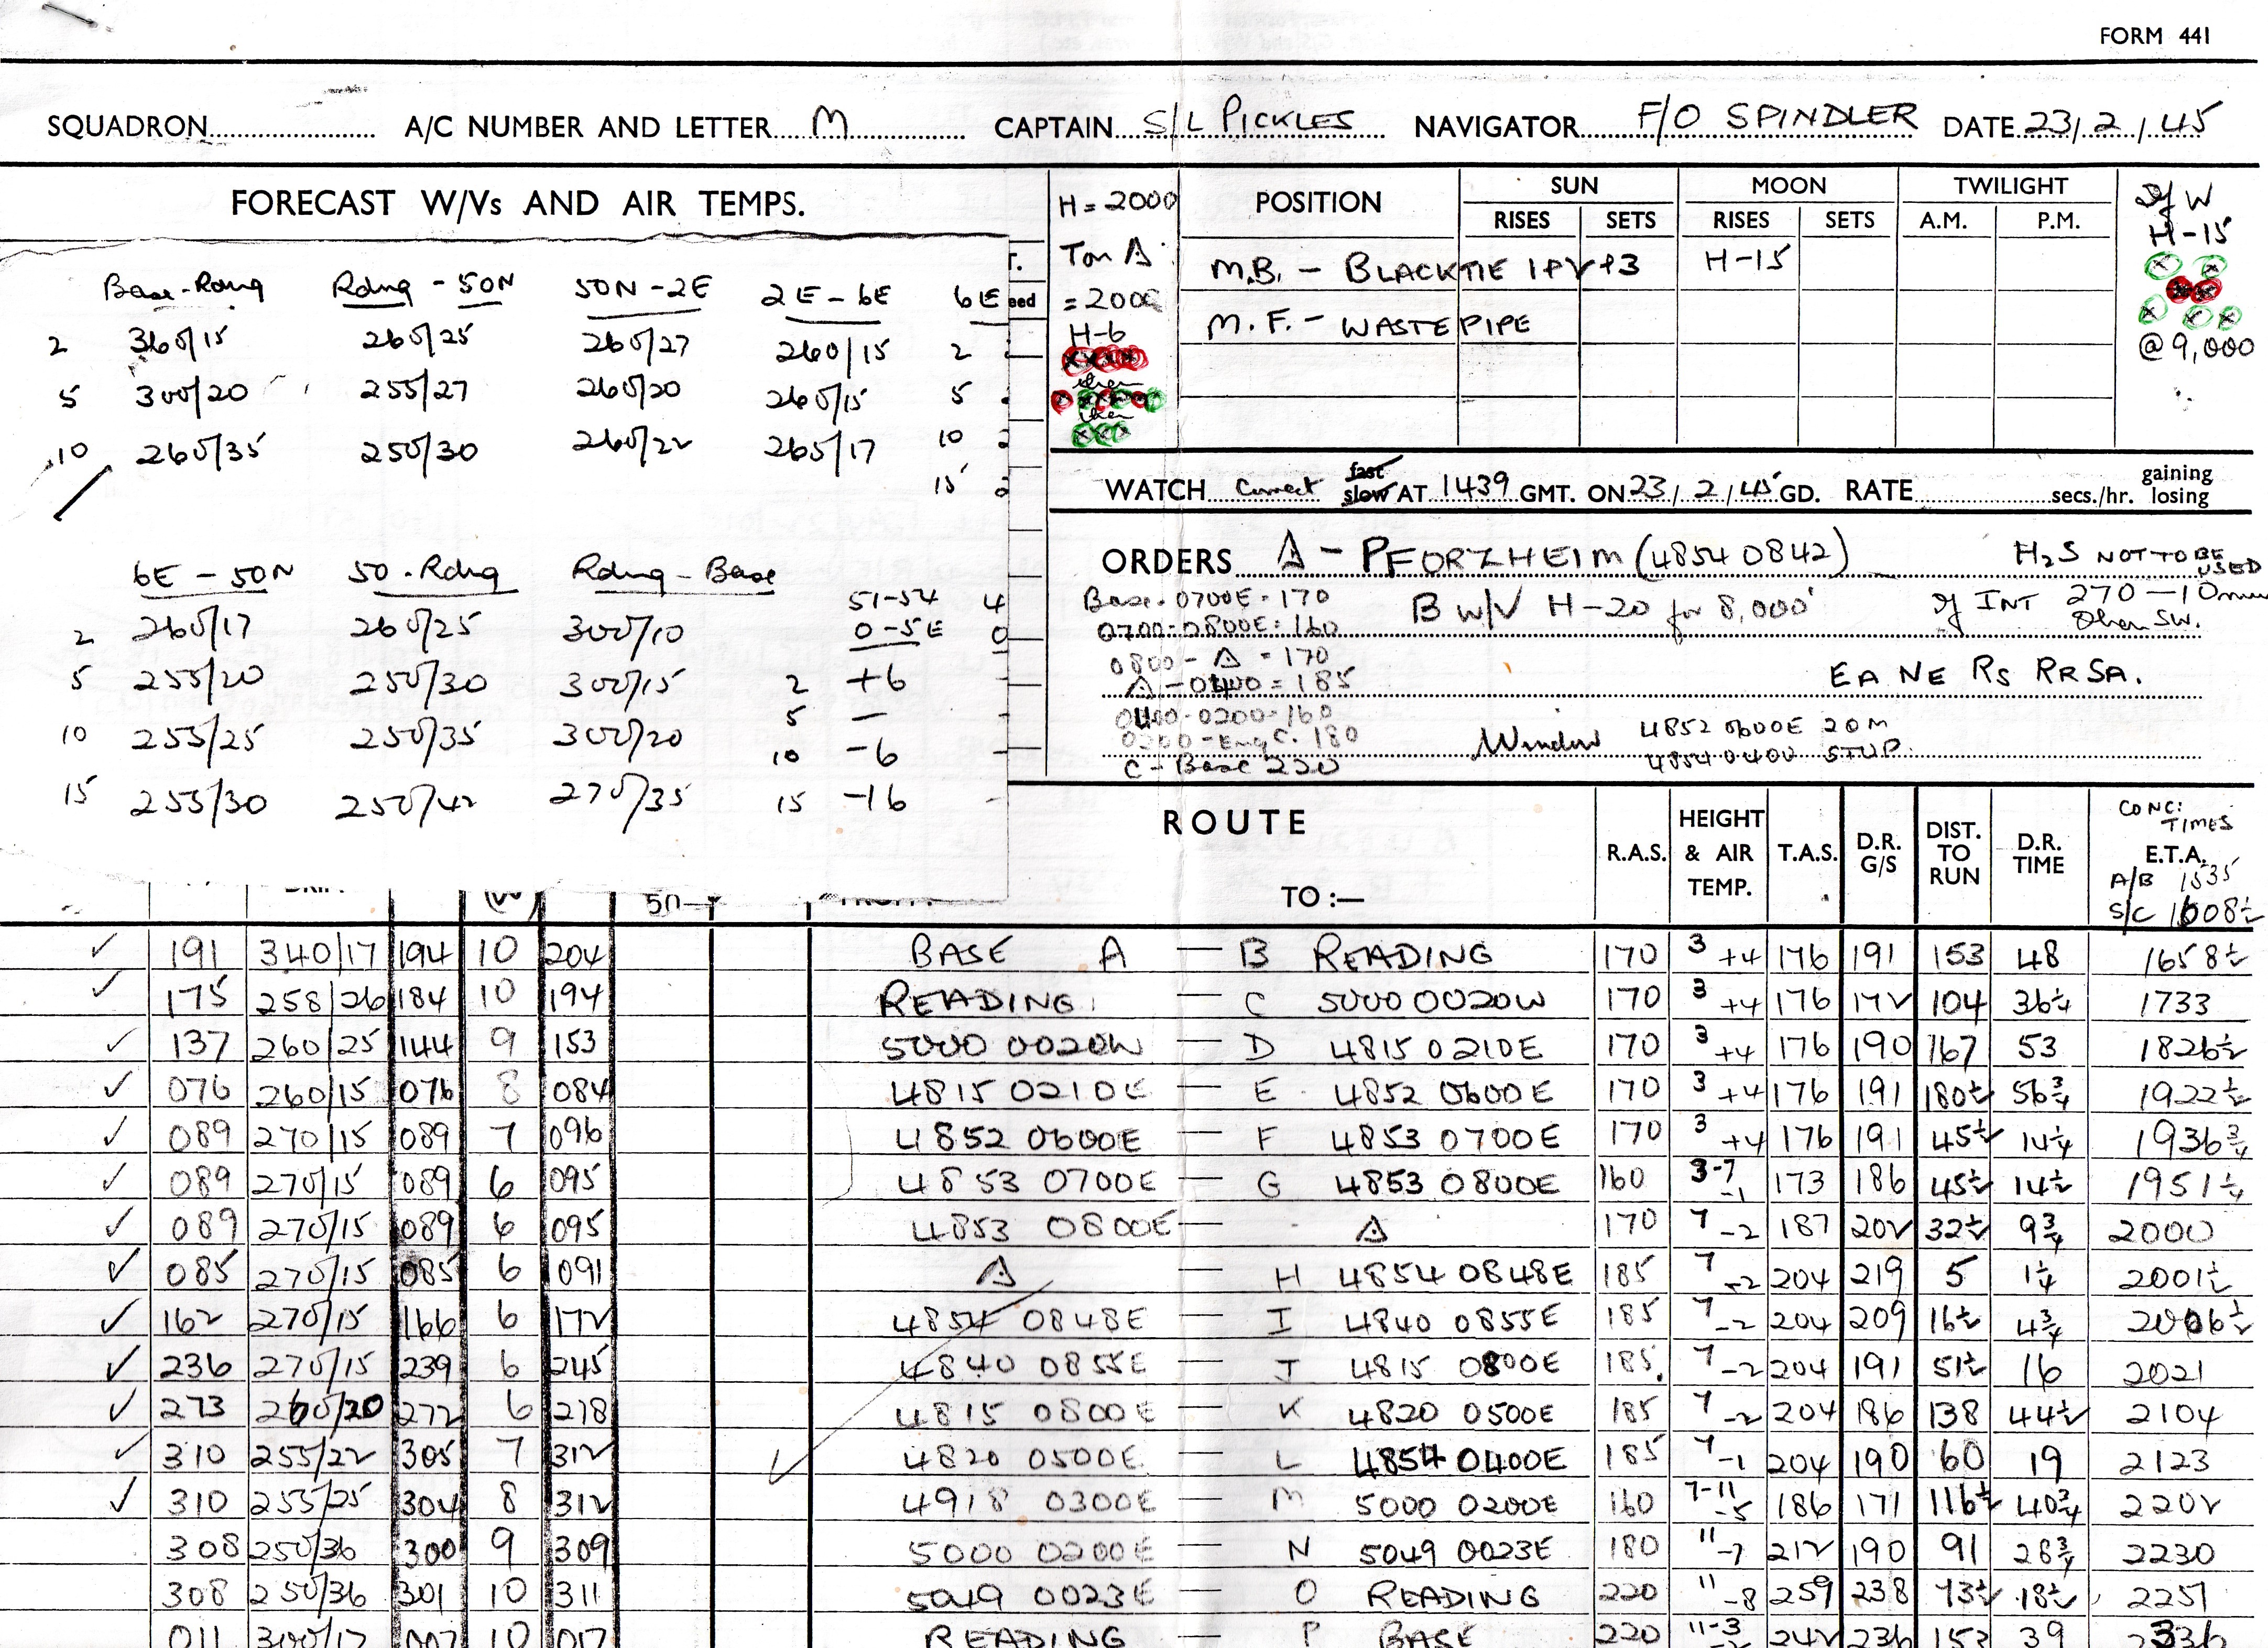 FORM 441
SQUADRON A/C NUMBER AND LETTER M CAPTAIN S/L PICKLES NAVIGATOR F/O SPINDLER DATE 23/2/45
FORECAST W/Vs AND AIR TEMPS.
Base-Rdng Rdng - 50N 50N-2E 2E-6E 6E
2 360/15 260/25 260/27 260/15 2
5 300/20 255/27 260/20 260/15 5
10 260/35 250/30 260/22 265/17 10
15
6E-50N 50-Rdng Rdng-Base
51-54 4
0-5E 0
2 260/17 260/25 300/10
5 255/20 250/30 300/15 2 +6
5 —
10 255/25 250/35 300/20 10 -6
15 255/30 250/42 270/35 15 -16
H=2000
eed
H-6
xxxx
then
then
xxx
POSITION SUN MOON TWILIGHT
RISES SETS RISES SETS A.M. P.M.
M.B. - BLACKTIE 1+V+3 H-15
M.F. - WASTEPIPE
H-15
@ 9,000
WATCH Correct fast slow AT 1439 GMT. ON 23/2/45 GD. RATE secs./hr. gaining losing
ORDERS A - PFORZHEIM (4854 0842) H2S NOT TO BE USED
Base-0700E-170 B W/V H-20 for 8,000' If INT 270-10 mins
then SW.
0700-0800E=160
0800-A=170
A-0400=185 EA NE RS RRSA.
0400-0200-160
0200-Eng C. 180 Window 4852 0600E 20M
4854 0400
C-Base 220
ROUTE
TO :— R.A.S. HEIGHT & AIR TEMP. T.A.S. D.R. G/S DIST. TO RUN D.R. TIME CONC: TIMES E.T.A.
A/B 1535
S/C 1608½
✓ 191 340/17 194 10 204 BASE A — B READING 170 3 +4 176 191 153 48 1658½
✓ 175 258/26 184 10 194 READING — C 5000 0020W 170 3 +4 176 172 104 36¼ 1733
✓ 137 260/25 144 9 153 5000 0020W — D 4815 0210E 170 3 +4 176 190 167 53 1826½
✓ 076 260/15 076 8 084 4815 0210E — E 4852 0600E 170 3 +4 176 191 180½ 56¾ 1922½
✓ 089 270/15 089 7 096 4852 0600E — F 4853 0700E 170 3 +4 176 191 45½ 14¼ 1936¾
✓ 089 270/15 089 6 095 4853 0700E — G 4853 0800E 160 3-7 -1 173 186 45½ 14½ 1951¼
✓ 089 270/15 089 6 095 4853 0800E — A 170 7 -2 187 202 32½ 9¾ 2000
✓ 085 270/15 085 6 091 A H 4854 0848E 185 7 -2 204 219 5 1¼ 2001½
✓ 162 270/15 166 6 172 4854 0848E — I 4840 0855E 185 7 -2 204 209 16½ 4¾ 2006½
✓ 236 270/15 239 6 245 4840 0855E — J 4815 0800E 185 7 -2 204 191 51½ 16 2021
✓ 273 260/20 272 6 278 4815 0800E — K 4820 0500E 185 7 -2 204 186 138 44½ 2104
✓ 310 255/22 305 7 312 4820 0500E — L 4854 0400E 185 7 -1 204 190 60 19 2123
✓ 310 255/25 304 8 312 4918 0300E — M 5000 0200E 160 7-11 -5 186 171 116½ 40¾ 2202
308 250/36 300 9 309 5000 0200E — N 5049 0023E 180 11 -7 212 190 91 28¾ 2230
308 250/36 301 10 311 5049 0023E — O READING 220 11 -8 259 238 73½ 18½ 2251
011 300/17 007 10 017 READING — P BASE 220 11-3 242 236 153 39 2336